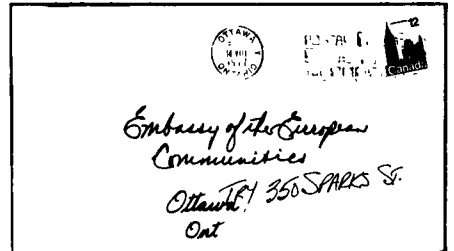 OTTAWA
12
Canada
Embassy of the European
Communities
Ottawa TRY 350 SPARKS ST.
Ont